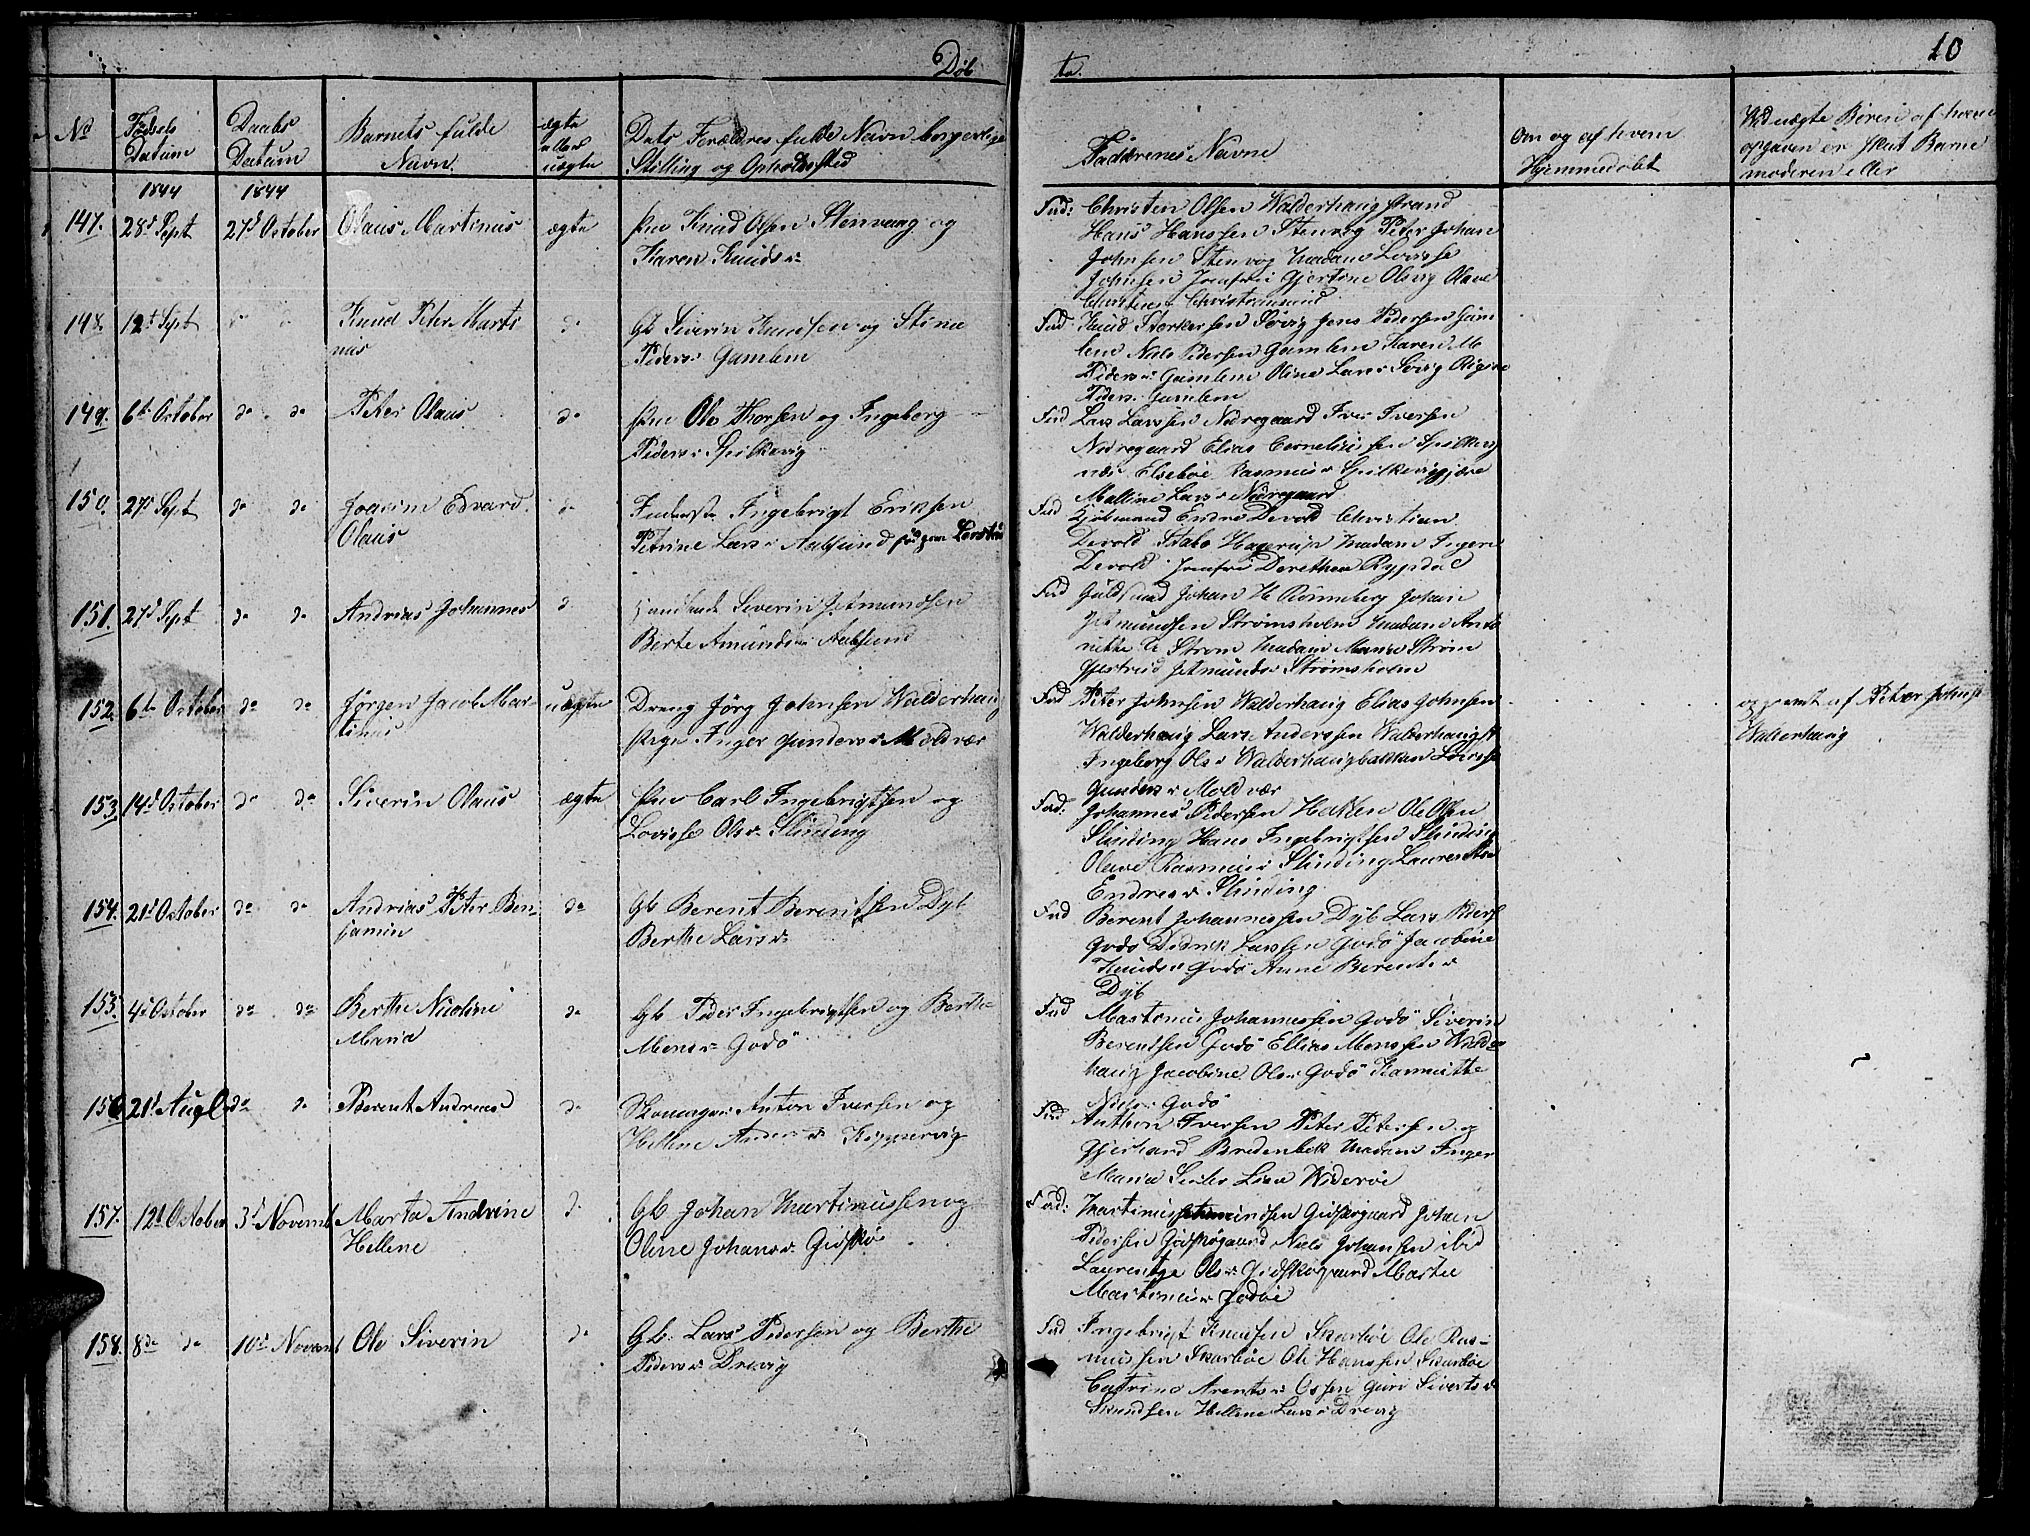 Døb
te.
10
No
Fødsels Datum
Daabs Datum
Barnets fulde Navn.
ægte eller uægte
Dets Forældres fulde Navn borgerlige Stilling og Opholdssted
Faddernes Navne
Om og af hvem Hjemmedøbt
Ved uægte Børn af hvem opgaven er skeet Barnemoderen eller
1844 1844
147. 28d Sept 27d October Olaus Martinus ægte
Knud Olsen Stenvaag og
Karen Knudsd.
Fad: Christen Olsen Walderhaug strand
Hans Hanssen Stenvog Peter Johan
Johnsen Stenvog Madam Lovisse
Johnsen Jomfru Gjertine Olsvig Olave
Christens Christiansund
148. 12t Sept do do Knud Peter Marti
nus
do
Gb Siverin Knudsen og Stina
Pedersd. Gamlem
Fad Knud Storkersen Søvig Jens Pedersen Gam
lem Nils Pedersen Gamlem Karen M
Pedersd. Gamlem Oline Larsd. Søvig
Pedersd. Gamlem
149. 6te October do do Peter Olaus do
Ole Thorsen og Ingeborg
Pedersd. Spilkevig
Fad Lars Larssen Nøregaard Iver Iversen
Nøregaard Elias Corneliussen Spilkevig
Elsebøe Rasmusd. Spilkevig
Malline Larsd. Nøregaard
150. 27d Sept do do Joacim Edvard
Olaus
do
Ingebrigt Eriksen
Petrine Larsd. Aalesund
Fad Kjøbmand Endre Devold Christian
Devold Stabo Hagerup Madam Inger
Devold Jomfru Dorethea Rypdal
151. 27d Sept do do Andrias Johannes d
Siverin Jetmundsen
Berte Amundsd. Aalesund
Fad Guldsmed Johan H Rønneberg Johan
Jetmundsen Strømsholm Madam Anto
nette C Strøm Madam Maria Strøm
Gjertrud Jetmundsd Strømsholm
152. 6te October do do Jørgen Jacob Mar-
tinus
uægte
Dreng Jørg Johnsen Walderhaug
Pige Inger Gundersd. Moldvær
Fad Peter Johnsen Walderhaug Elias Johnsen
Walderhaug Lars Anderssen Walderhaug
Ingeborg Olsd. Walderhaugbakken Lovisse
Gundersd. Moldvær
opgivet af Peter Johns
Walderhaug
153. 14d October do do Siverin Olaus ægte
Carl Ingebrigtsen og
Lovisse Olsd. Slinding
Fad: Johannes Pedersen Hessen Ole Olsen
Slinding Hans Ingebrigtsen Slinding
Olave Rasmusd. Slinding Laurentse
Endresd. Slinding
154. 21d October do do Andrias Peter Ben-
jamin
do
Gb Berent Berentsen Dyb
Berthe Larsd.
Fad Berent Johannessen Dyb Lars Peders
Godø Didrik Larssen Godø Jacobine
Knudsd Godø Anne Berentsd.
Dyb
153. 4d October do do Berthe Nicoline
Maria
do
Gb. Peder Ingebrigtsen og Berthe
Monsd. Godø
Fad Martinus Johannessen Godø Siverin
Berentsen Godø Ellias Monssen Walder
haug Jacobine Olsd. Godø
Nielsd. Godø
156 21d Aug do do Berent Andreas do
Skomager Anton Iversen og
Hellene Andersd. Kippervig
Fad Anthon Iversen Peter Petersen og
Gjerhard Bredenbek Madam Inger
Maria Lisa Widerøe
157. 12d October 3d Novemb Marta Andrine
Hellene
d.
Gb Johan Martinussen og
Oline Johansd. Gidskø
Fad: Martinus Gidskøgaard Johan
Pedersen Gidskøgaard Niels Johansen ibid
Laurentze Olsd. Gidskøgaard Marte
Martinusd. Godøe
158. 8de do 10d Novemb Ole Siverin do
Gb. Lars Pedersen og Berthe
Pedersd. Drevig
Fad Ingebrigt Knudsen Skarbøe Ole Ras-
mussen Skarbøe Ole Hanssen Skarbøe
Catrine Arentsd. Ossen Guri Sivertsd.
Hellene Larsd. Drevig